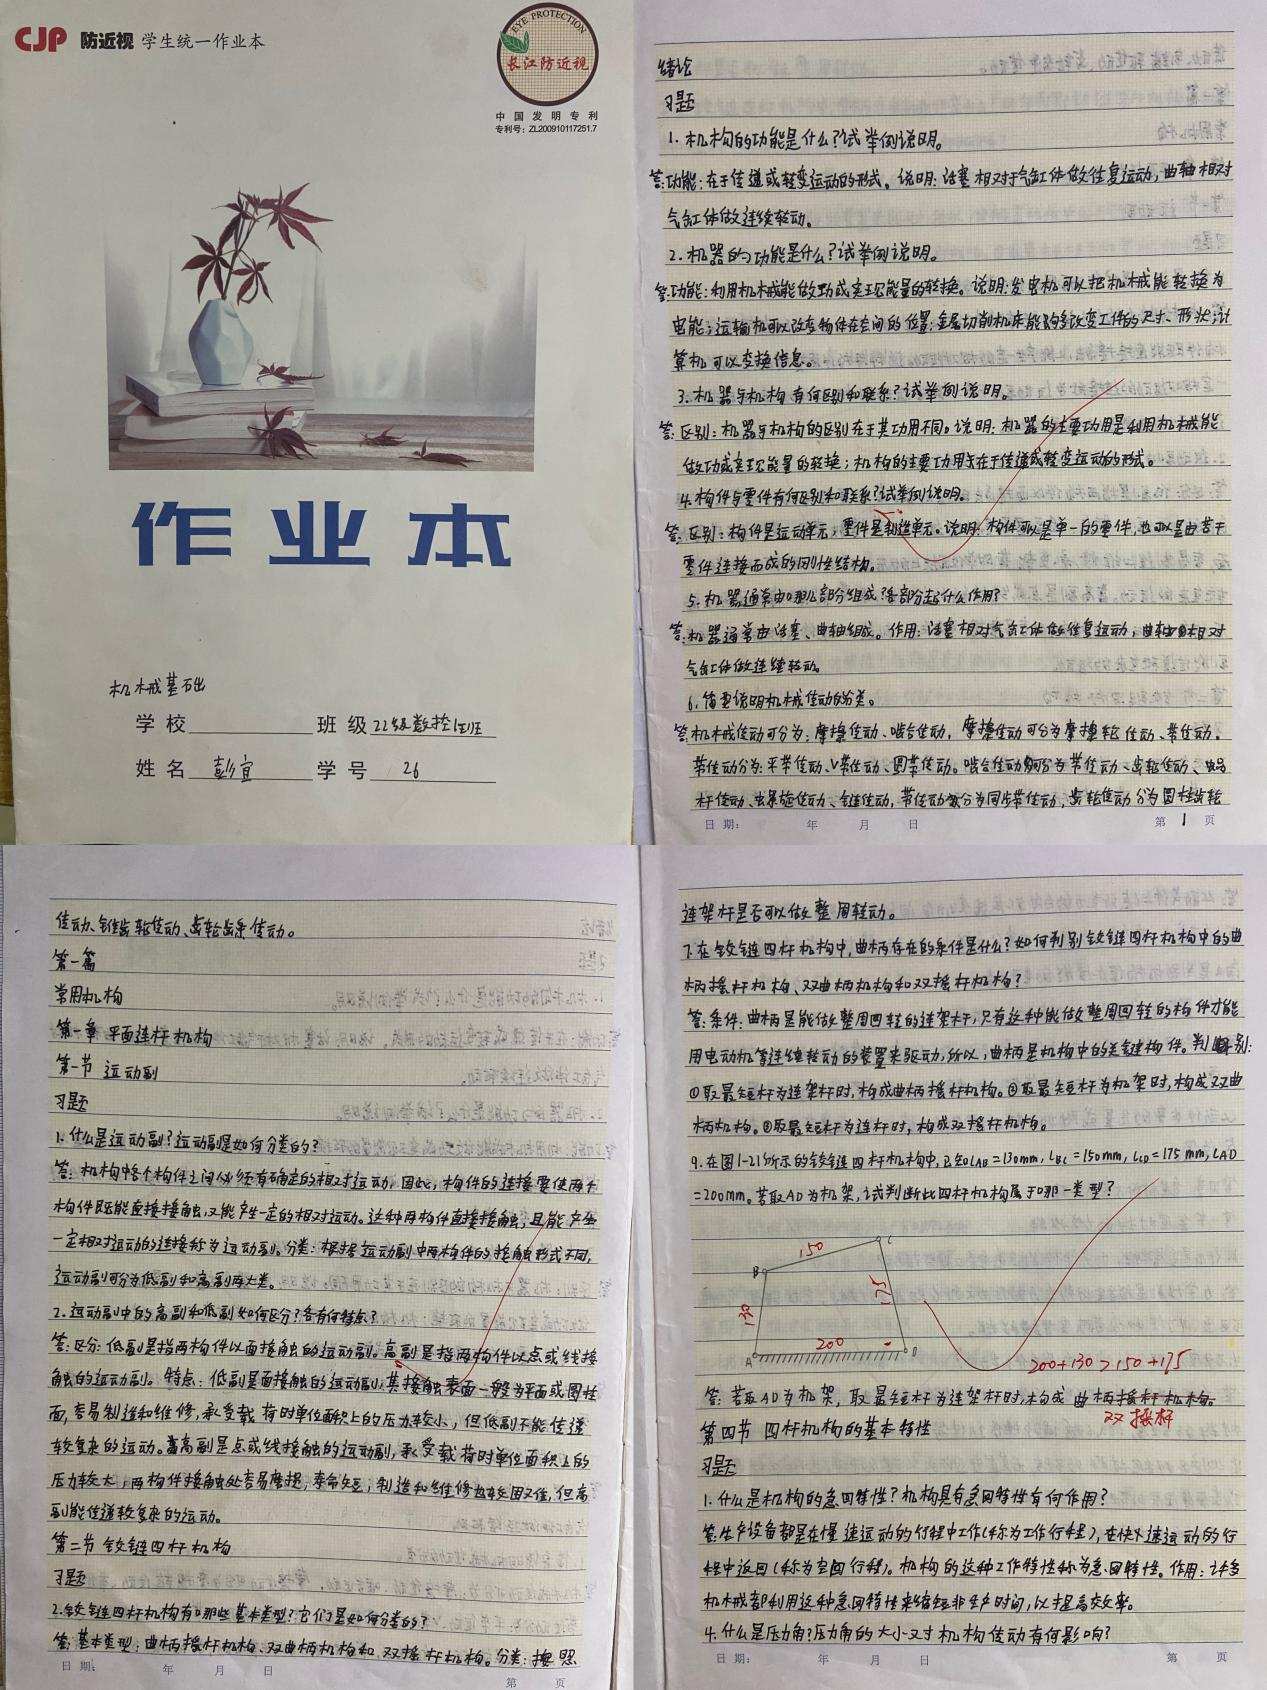 CJP 防近视 学生统一作业本
EYE PROTECTION
长江防近视
中国发明专利
专利号：ZL200910117251.7
作业本
机械基础
学校 班级 22级数控1班
姓名 彭宜 学号 26
绪论
习题
1.机构的功能是什么?试举例说明。
答:功能:在于传递或转变运动的形式。说明:活塞相对于气缸体做往复运动,曲轴相对
气缸体做连续转动。
2.机器的功能是什么?试举例说明。
答:功能:利用机械能做功或实现能量的转换。说明:发电机可以把机械能转换为
电能;运输机可以改变物体在空间的位置;金属切削机床能够改变工件的尺寸、形状;计
算机可以变换信息。
3.机器与机构有何区别和联系?试举例说明。
答:区别:机器与机构的区别在于其功用不同。说明:机器的主要功用是利用机械能
做功或实现能量的转换;机构的主要功用在于传递或转变运动的形式。
4.构件与零件有何区别和联系?试举例说明。
答:区别:构件是运动单元,零件是制造单元。说明:构件可以是单一的零件,也可以是由若干
零件连接而成的刚性结构。
5.机器通常由哪几部份组成?各部份起什么作用?
答:机器通常由活塞、曲轴组成。作用:活塞相对气缸体做往复运动,曲轴相对
气缸体做连续转动。
6.简要说明机械传动的分类。
答:机械传动可分为:摩擦传动、啮合传动,摩擦传动可分为摩擦轮传动、带传动。
带传动分为:平带传动、V带传动、圆带传动。啮合传动可分为带传动、齿轮传动、蜗
杆传动、螺旋传动、链传动,带传动分为同步带传动,齿轮传动分为圆柱齿轮
日期: 年 月 日 第 1 页
传动、锥齿轮传动、齿轮齿条传动。
第一篇
常用机构
第一章 平面连杆机构
第一节 运动副
习题
1.什么是运动副?运动副是如何分类的?
答:机构中各个构件之间必须有确定的相对运动,因此,构件的连接要使两个
构件既能直接接触,又能产生一定的相对运动。这种两构件直接接触,且能产生
一定相对运动的连接称为运动副。分类:根据运动副中两构件的接触形式不同,
运动副可分为低副和高副两大类。
2.运动副中的高副和低副如何区分?各有何特点?
答:区分:低副是指两构件以面接触的运动副。高副是指两构件以点或线接
触的运动副。特点:低副是面接触的运动副,其接触表面一般为平面或圆柱
面,容易制造和维修,承受载荷时单位面积上的压力较小,但低副不能传递
较复杂的运动。高副是点或线接触的运动副,承受载荷时单位面积上的
压力较大,两构件接触处容易磨损,寿命短,制造和维修也较困难,但高
副能传递较复杂的运动。
第二节 铰链四杆机构
习题
2.铰链四杆机构有哪些基本类型?它们是如何分类的?
答:基本类型:曲柄摇杆机构、双曲柄机构和双摇杆机构。分类:按照
日期: 年 月 日 第 页
连架杆是否可以做整周转动。
7.在铰链四杆机构中,曲柄存在的条件是什么?如何判别铰链四杆机构中的曲
柄摇杆机构、双曲柄机构和双摇杆机构?
答:条件:曲柄是能做整周回转的连架杆,只有这种能做整周回转的构件才能
用电动机等连续转动的装置来驱动,所以,曲柄是机构中的关键构件。判别:
①取最短杆为连架杆时,构成曲柄摇杆机构。②取最短杆为机架时,构成双曲
柄机构。③取最短杆为连杆时,构成双摇杆机构。
9.在图1-21所示的铰链四杆机构中,已知LAB=130mm,LBC=150mm,LCD=175mm,LAD
=200mm。若取AD为机架,试判断此四杆机构属于哪一类型?
B 150 C
130 175
A 200 D
200+130>150+175
答:若取AD为机架,取最短杆为连架杆时,构成曲柄摇杆机构。
双摇杆
第四节 四杆机构的基本特性
习题
1.什么是机构的急回特性?机构具有急回特性有何作用?
答:生产设备都是在慢速运动的行程中工作(称为工作行程),在快速运动的行
程中返回(称为空回行程)。机构的这种工作特性称为急回特性。作用:许多
机械都利用这种急回特性来缩短非生产时间,以提高效率。
4.什么是压力角?压力角的大小对机构传动有何影响?
日期: 年 月 日 第 页